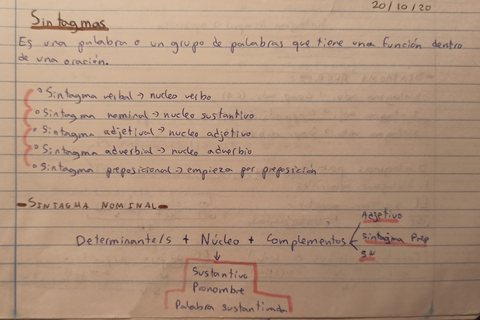 20/10/20
Sintagmas
Es una palabra o un grupo de palabras que tiene una función dentro
de una oración.
° Sintagma verbal → nucleo verbo
° Sintagma nominal → nucleo sustantivo
° Sintagma adjetival → nucleo adjetivo
° Sintagma adverbial → nucleo adverbio
° Sintagma preposicional → empieza por preposición
- SINTAGMA NOMINAL -
Determinante/s + Núcleo + Complementos
Adjetivo
Sintagma Prep
SN
Sustantivo
Pronombre
Palabra sustantivada